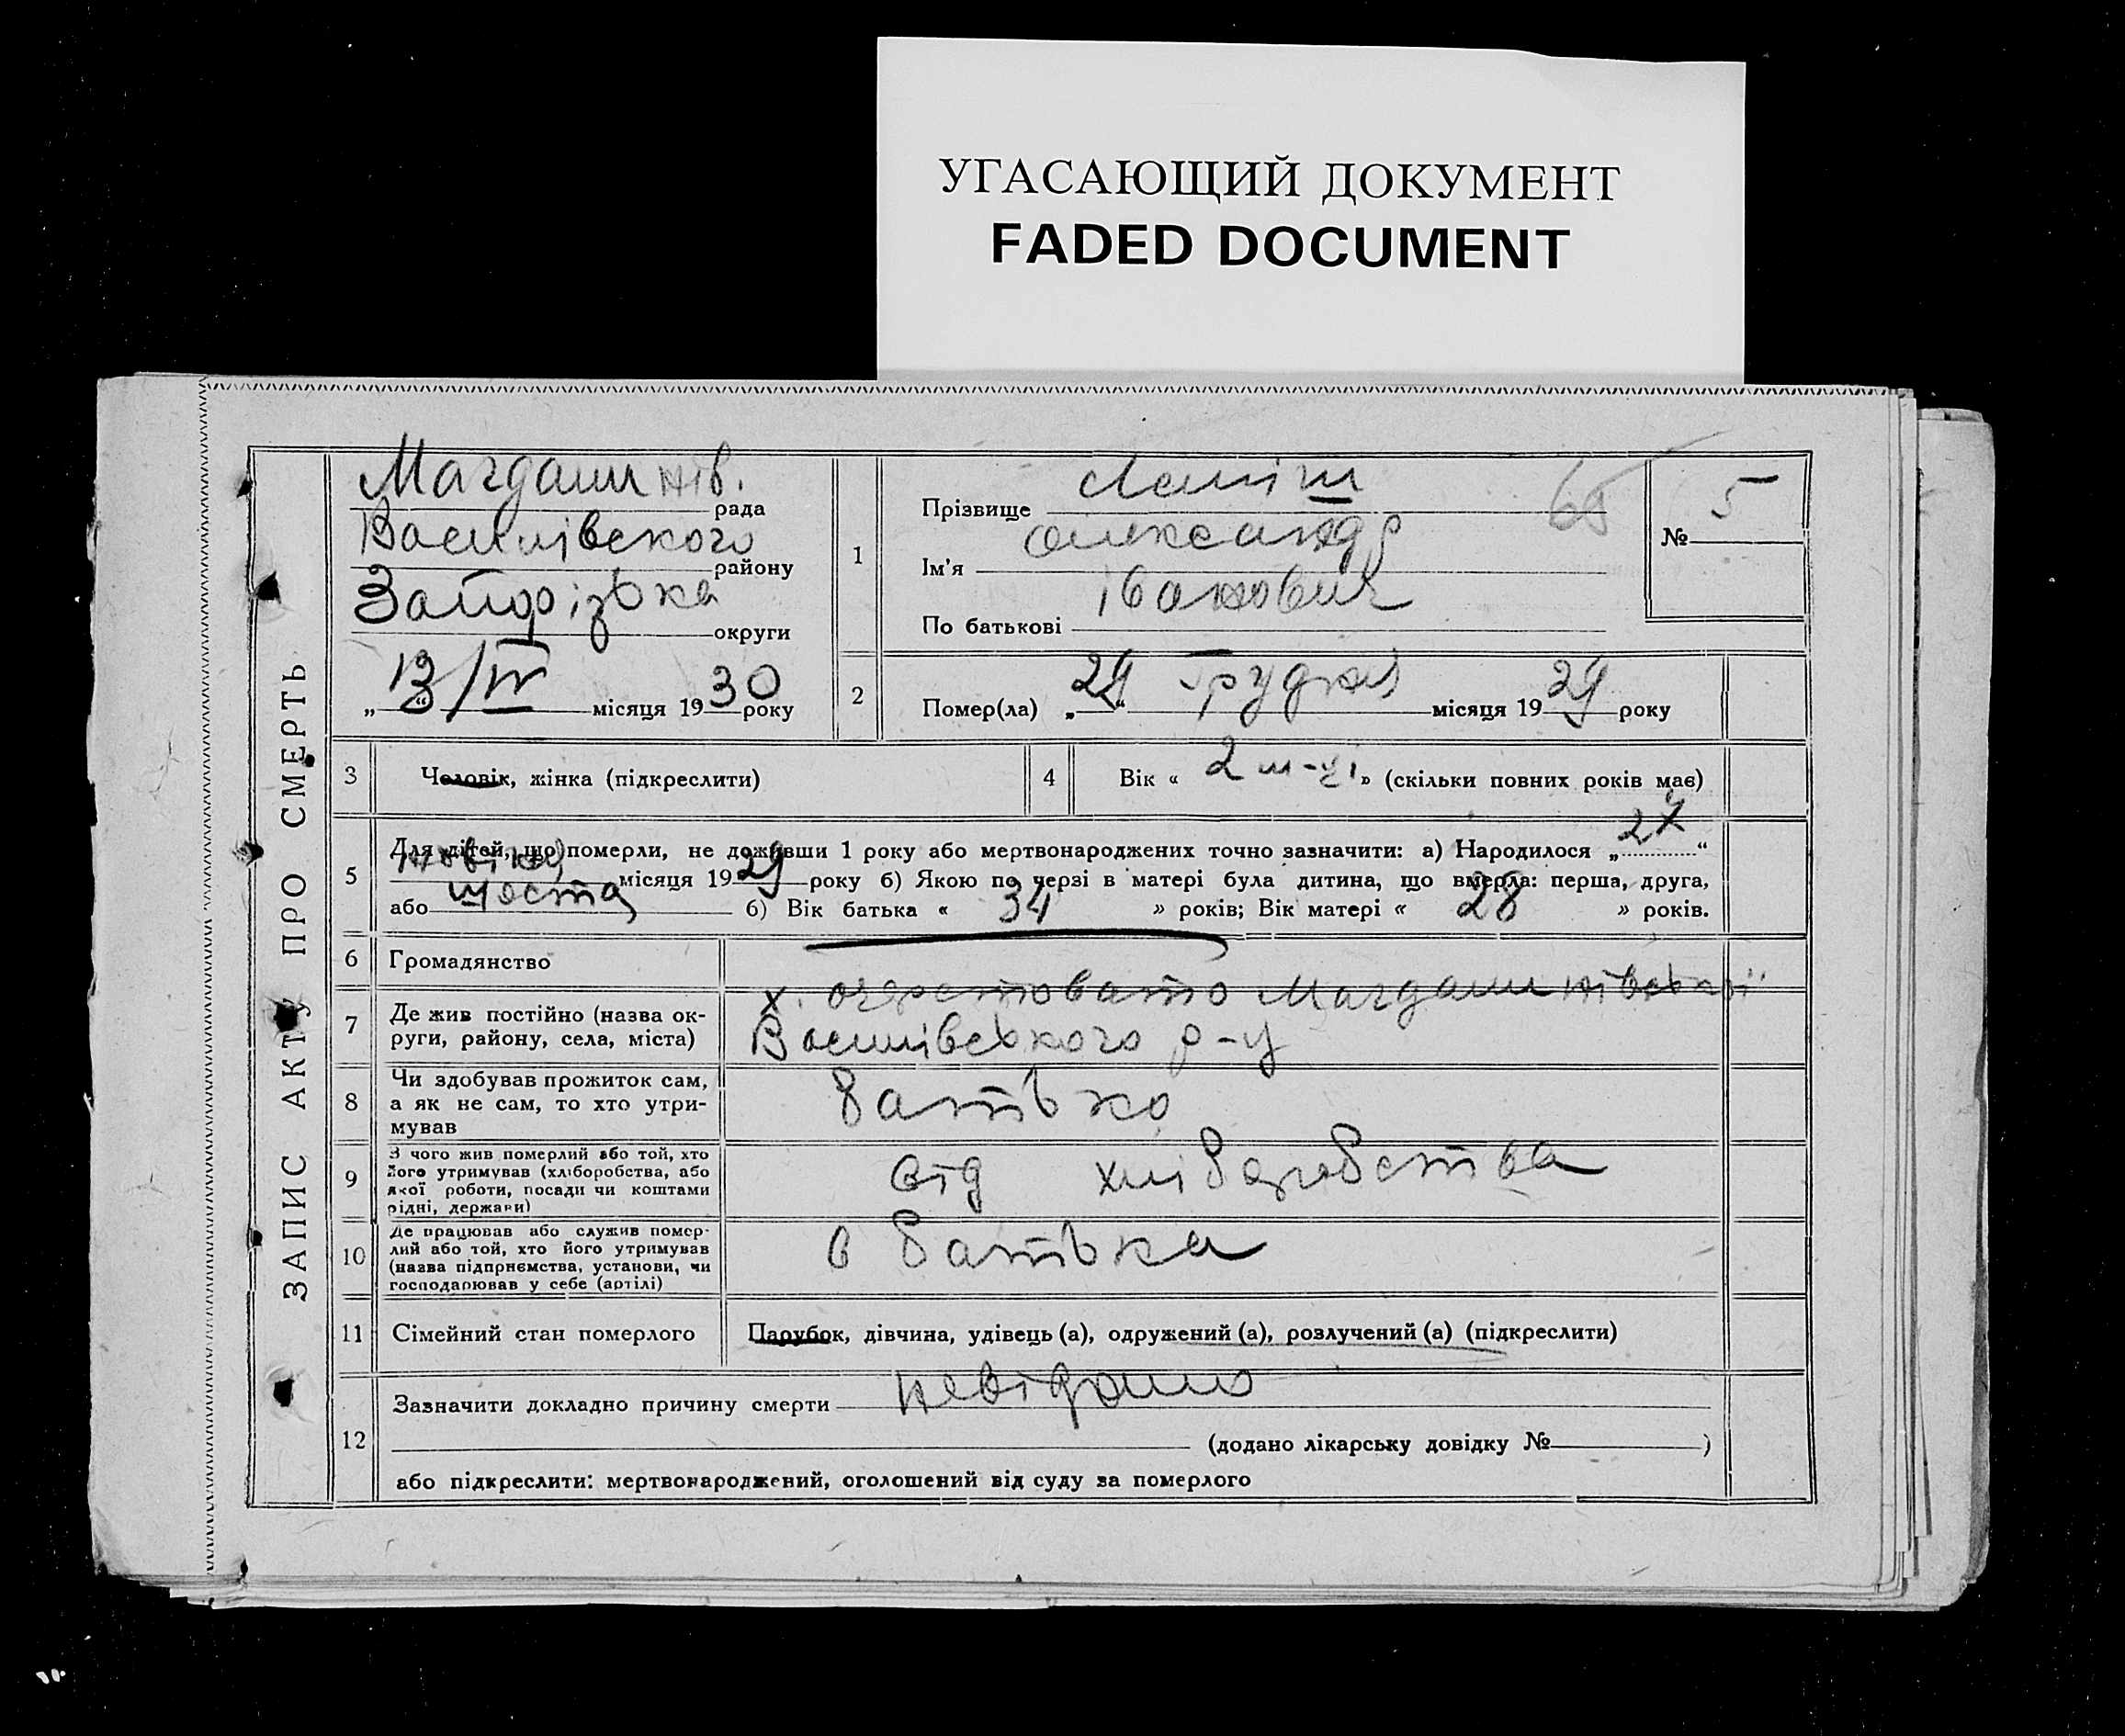 УГАСАЮЩИЙ ДОКУМЕНТ
FADED DOCUMENT
ЗАПИС АКТУ ПРО СМЕРТЬ
Магдалинів. рада
Василівского району
Запорізька округи
„13“/IV місяця 1930 року
1
Прізвище
65
Ім'я Олександр
По батькові Іванович
№ 5
2
Помер(ла) „29“ Грудня місяця 1929 року
3
Чоловік, жінка (підкреслити)
4
Вік « 2 м-ці » (скільки повних років має)
5
Для дітей, що померли, не доживши 1 року або мертвонароджених точно зазначити: а) Народилося „ “
місяця 1929 року б) Якою по черзі в матері була дитина, що вмерла: перша, друга,
або шоста б) Вік батька « 34 » років; Вік матері « 28 » років.
6
Громадянство
7
Де жив постійно (назва ок-
руги, району, села, міста)
х. Очеретовато Магдалинівської
Василівського р-у
8
Чи здобував прожиток сам,
а як не сам, то хто утри-
мував
батько
9
З чого жив померлий або той, хто
його утримував (хліборобства, або
якої роботи, посади чи коштами
рідні, держави)
від хліборобства
10
Де працював або служив помер-
лий або той, хто його утримував
(назва підприємства, установи, чи
господарював у себе (артілі)
в батька
11
Сімейний стан померлого
Парубок, дівчина, удівець (а), одружений (а), розлучений (а) (підкреслити)
12
Зазначити докладно причину смерти невідомо
(додано лікарську довідку № )
або підкреслити: мертвонароджений, оголошений від суду за померлого